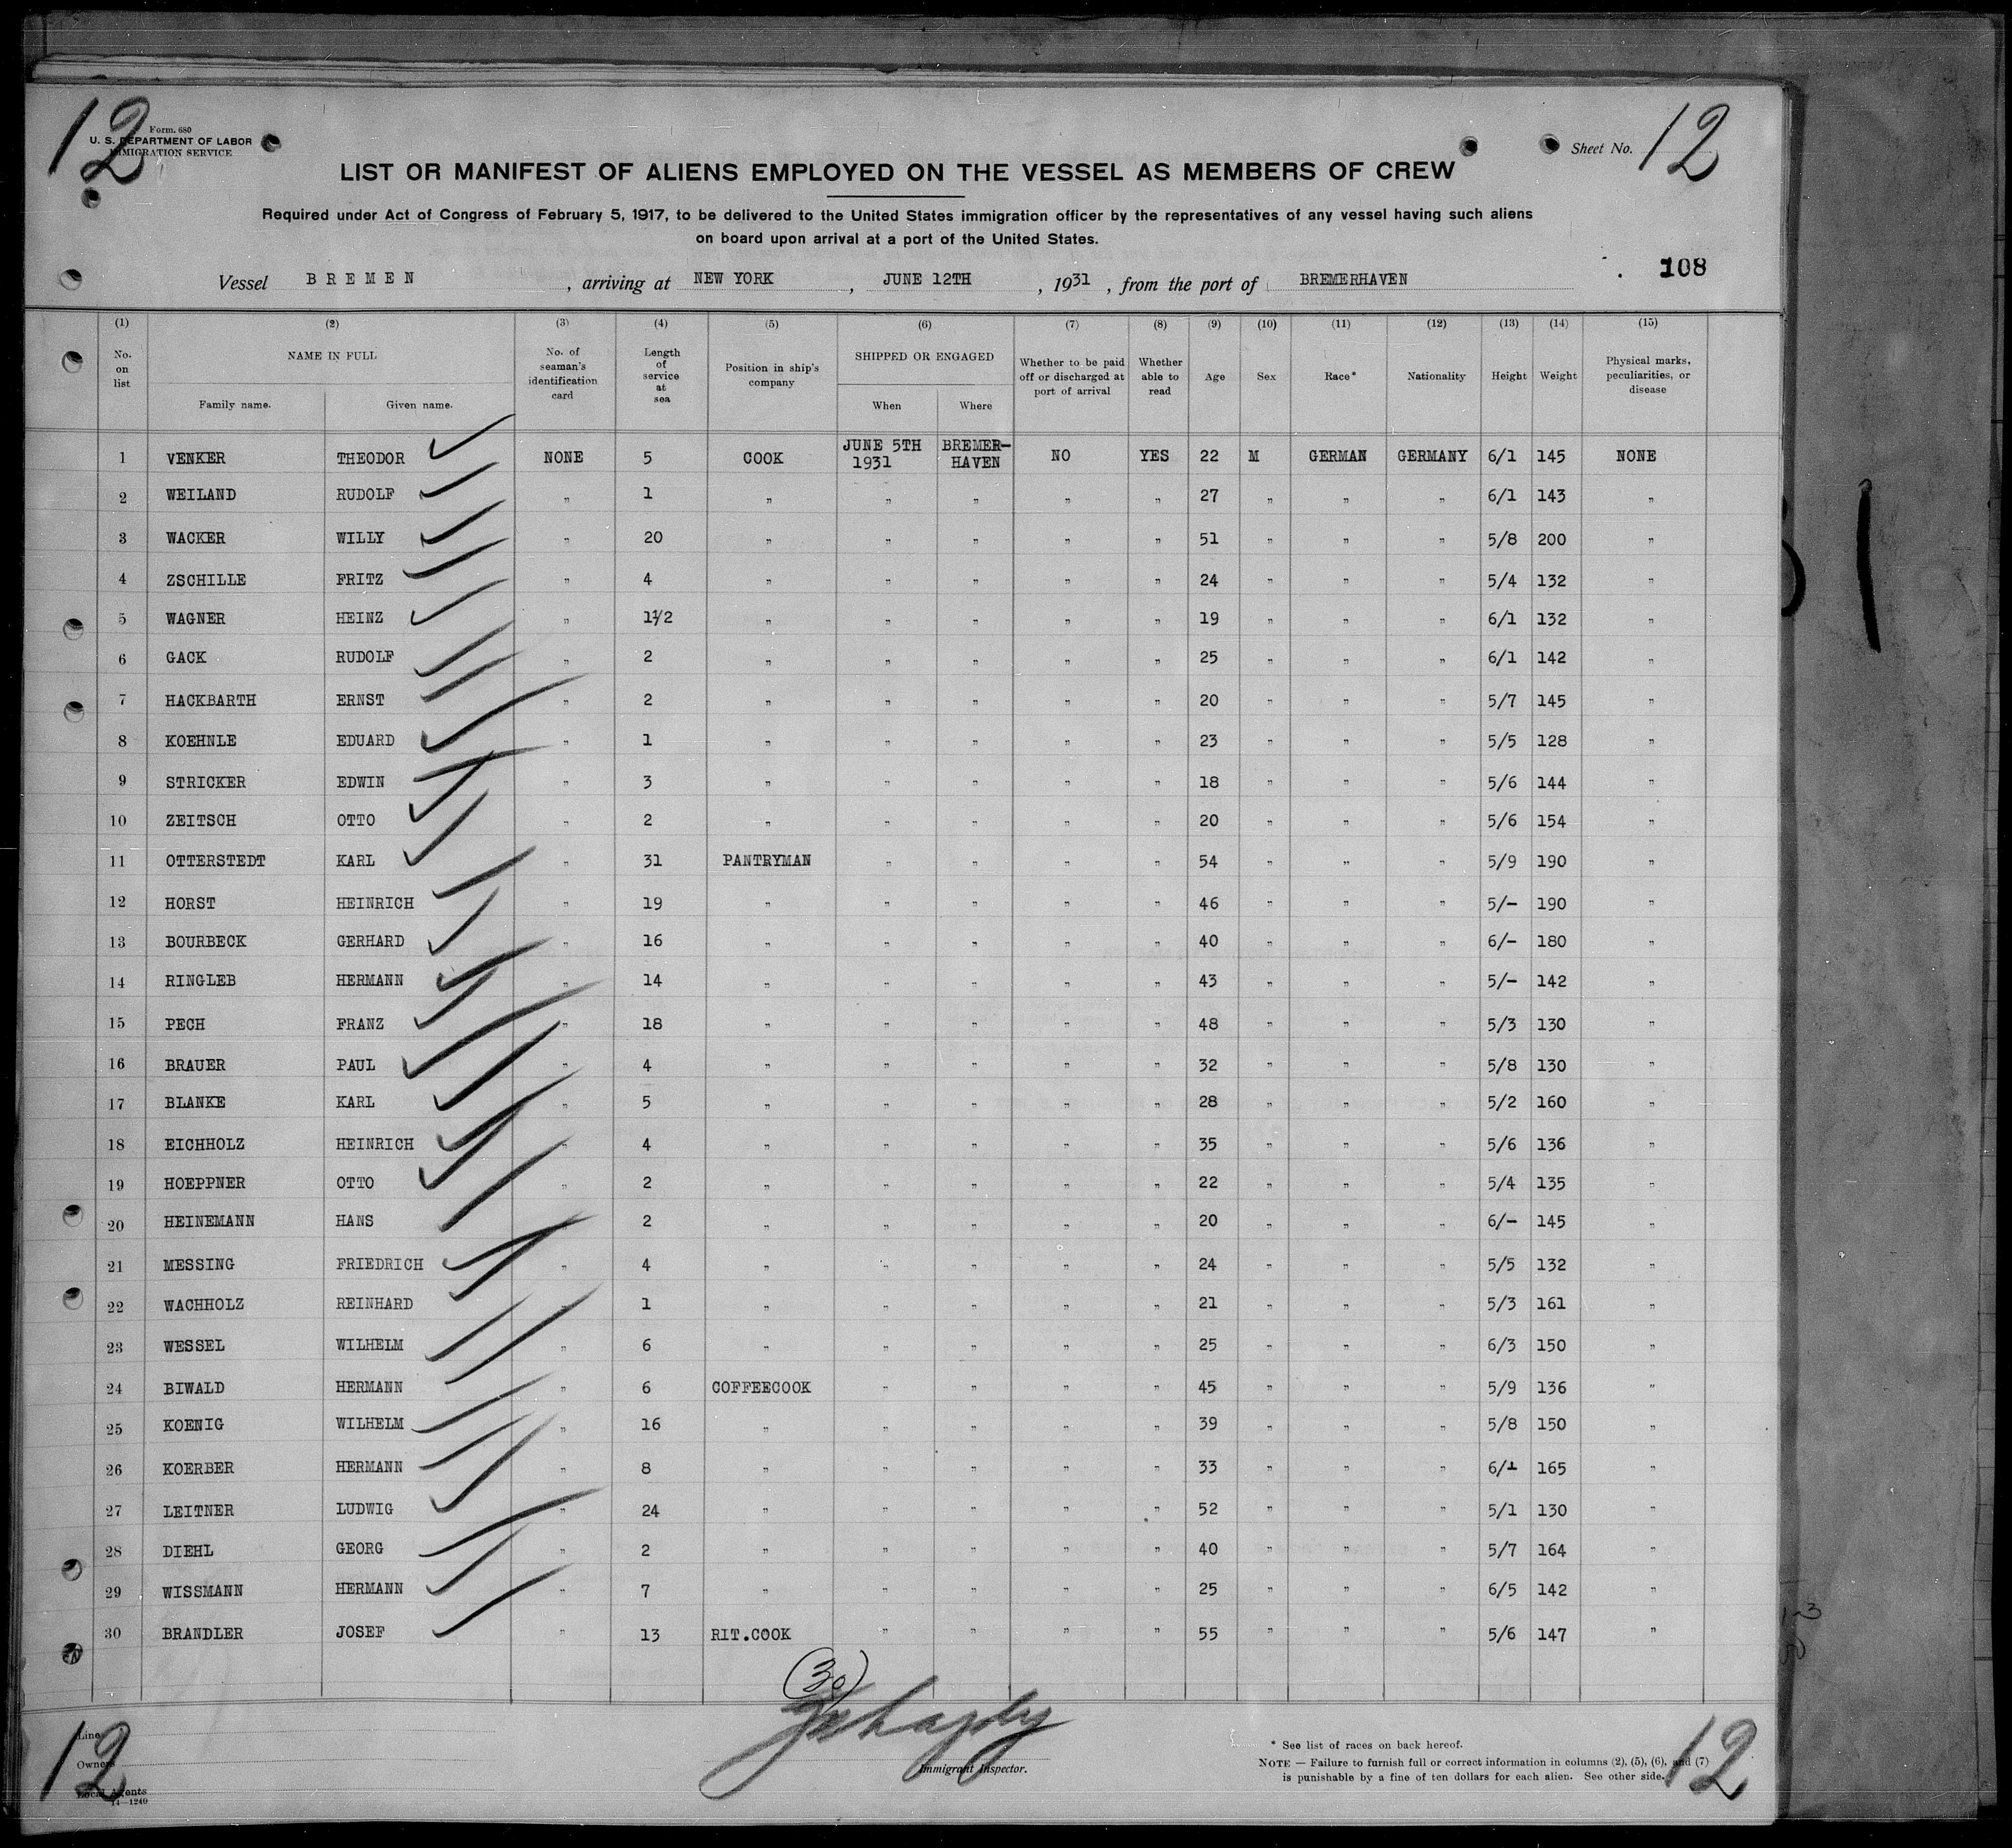 12
Form. 680
U. S. DEPARTMENT OF LABOR
IMMIGRATION SERVICE
Sheet No. 12
LIST OR MANIFEST OF ALIENS EMPLOYED ON THE VESSEL AS MEMBERS OF CREW
Required under Act of Congress of February 5, 1917, to be delivered to the United States immigration officer by the representatives of any vessel having such aliens
on board upon arrival at a port of the United States.
108
Vessel BREMEN , arriving at NEW YORK , JUNE 12TH , 1931 , from the port of BREMERHAVEN
(1) (2) (3) (4) (5) (6) (7) (8) (9) (10) (11) (12) (13) (14) (15)
No. on list NAME IN FULL Family name. Given name. No. of seaman's identification card Length of service at sea Position in ship's company SHIPPED OR ENGAGED When Where Whether to be paid off or discharged at port of arrival Whether able to read Age Sex Race* Nationality Height Weight Physical marks, peculiarities, or disease
1 VENKER THEODOR NONE 5 COOK JUNE 5TH 1931 BREMER-HAVEN NO YES 22 M GERMAN GERMANY 6/1 145 NONE
2 WEILAND RUDOLF " 1 " " " " " 27 " " " 6/1 143 "
3 WACKER WILLY " 20 " " " " " 51 " " " 5/8 200 "
4 ZSCHILLE FRITZ " 4 " " " " " 24 " " " 5/4 132 "
5 WAGNER HEINZ " 1½ " " " " " 19 " " " 6/1 132 "
6 GACK RUDOLF " 2 " " " " " 25 " " " 6/1 142 "
7 HACKBARTH ERNST " 2 " " " " " 20 " " " 5/7 145 "
8 KOEHNLE EDUARD " 1 " " " " " 23 " " " 5/5 128 "
9 STRICKER EDWIN " 3 " " " " " 18 " " " 5/6 144 "
10 ZEITSCH OTTO " 2 " " " " " 20 " " " 5/6 154 "
11 OTTERSTEDT KARL " 31 PANTRYMAN " " " " 54 " " " 5/9 190 "
12 HORST HEINRICH " 19 " " " " " 46 " " " 5/- 190 "
13 BOURBECK GERHARD " 16 " " " " " 40 " " " 6/- 180 "
14 RINGLEB HERMANN " 14 " " " " " 43 " " " 5/- 142 "
15 PECH FRANZ " 18 " " " " " 48 " " " 5/3 130 "
16 BRAUER PAUL " 4 " " " " " 32 " " " 5/8 130 "
17 BLANKE KARL " 5 " " " " " 28 " " " 5/2 160 "
18 EICHHOLZ HEINRICH " 4 " " " " " 35 " " " 5/6 136 "
19 HOEPPNER OTTO " 2 " " " " " 22 " " " 5/4 135 "
20 HEINEMANN HANS " 2 " " " " " 20 " " " 6/- 145 "
21 MESSING FRIEDRICH " 4 " " " " " 24 " " " 5/5 132 "
22 WACHHOLZ REINHARD " 1 " " " " " 21 " " " 5/3 161 "
23 WESSEL WILHELM " 6 " " " " " 25 " " " 6/3 150 "
24 BIWALD HERMANN " 6 COFFEECOOK " " " " 45 " " " 5/9 136 "
25 KOENIG WILHELM " 16 " " " " " 39 " " " 5/8 150 "
26 KOERBER HERMANN " 8 " " " " " 33 " " " 6/1 165 "
27 LEITNER LUDWIG " 24 " " " " " 52 " " " 5/1 130 "
28 DIEHL GEORG " 2 " " " " " 40 " " " 5/7 164 "
29 WISSMANN HERMANN " 7 " " " " " 25 " " " 6/5 142 "
30 BRANDLER JOSEF " 13 RIT.COOK " " " " 55 " " " 5/6 147 "
(30)
Line
Owners
Local Agents
14—1240
12
Immigrant Inspector.
* See list of races on back hereof.
NOTE — Failure to furnish full or correct information in columns (2), (5), (6), and (7)
is punishable by a fine of ten dollars for each alien. See other side.
12